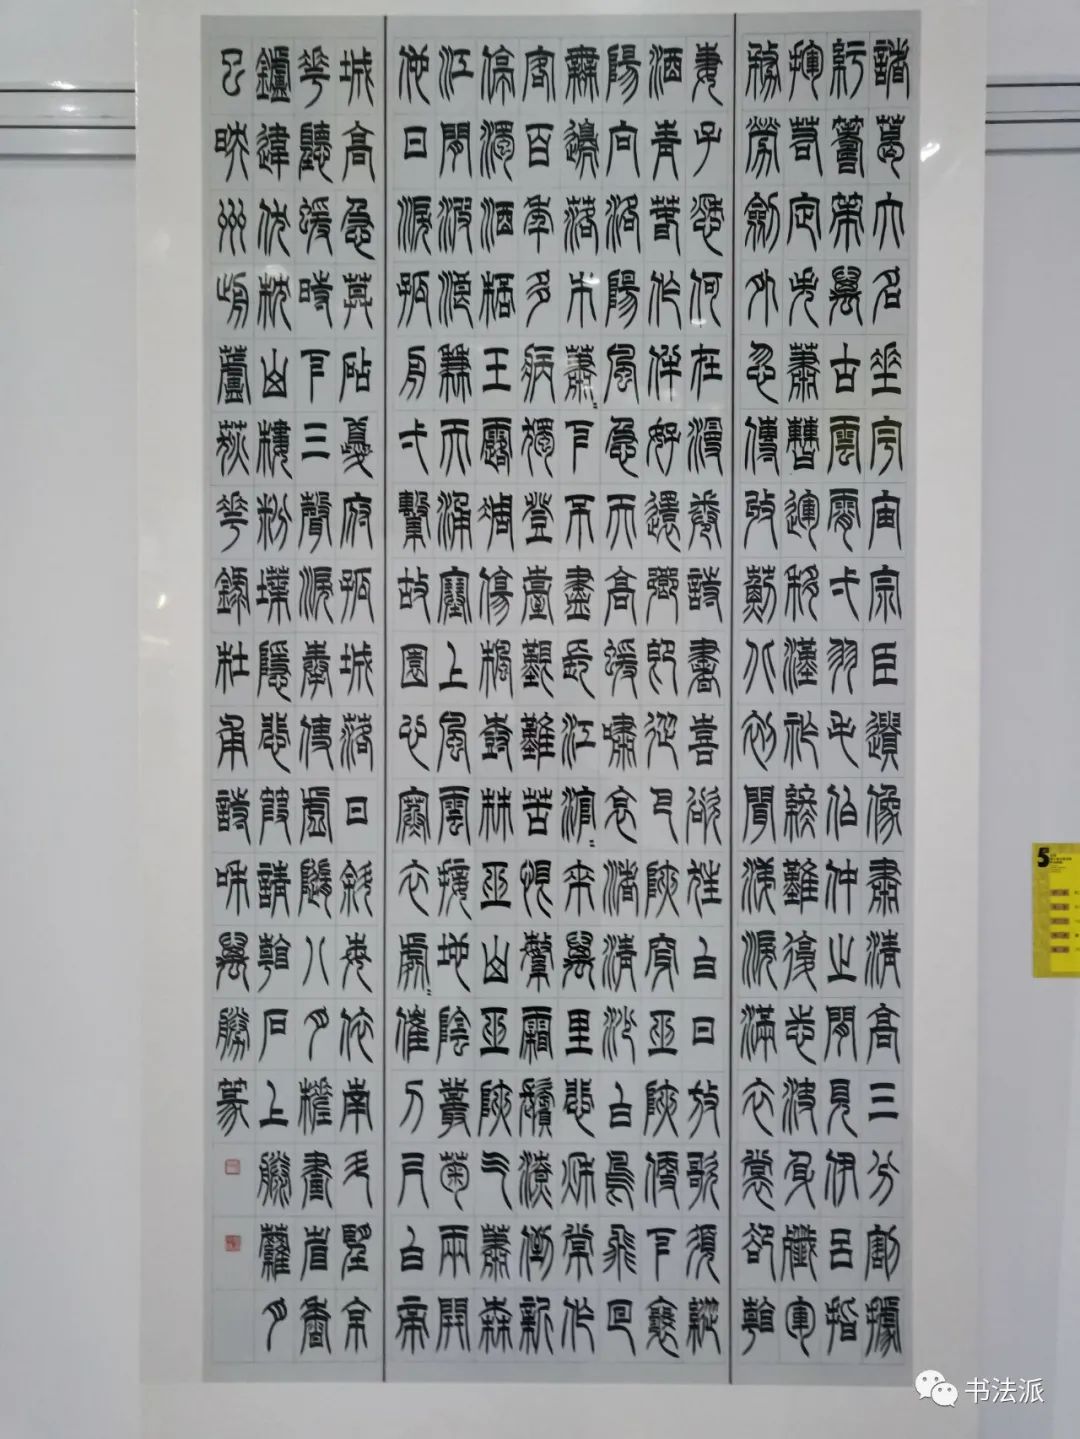 諸葛大名垂宇宙宗臣遺像肅清高三分割據
紆籌策萬古雲霄一羽毛伯仲之間見伊呂指
揮若定失蕭曹運移漢祚終難復志決身殲軍
務勞劍外忽傳收薊北初聞涕淚滿衣裳卻看
妻子愁何在漫卷詩書喜欲狂白日放歌須縱
酒青春作伴好還鄉即從巴峽穿巫峽便下襄
陽向洛陽風急天高猿嘯哀渚清沙白鳥飛回
無邊落木蕭〻下不盡長江滾〻來萬里悲秋常作
客百年多病獨登臺艱難苦恨繁霜鬢潦倒新
停濁酒杯玉露凋傷楓樹林巫山巫峽氣蕭森
江間波浪兼天湧塞上風雲接地陰叢菊兩開
他日淚孤舟一繫故園心寒衣處〻催刀尺白帝
城高急暮砧夔府孤城落日斜每依南斗望京
華聽猿實下三聲淚奉使虛隨八月槎畫省香
爐違伏枕山樓粉堞隱悲笳請看石上藤蘿月
已映洲前蘆荻花錄杜甫詩萬勝篆
5
书法派